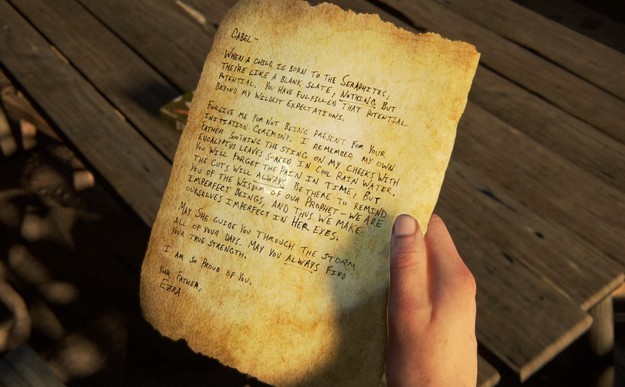 CABEL-
WHEN A CHILD IS BORN TO THE SERAPHITES,
THEY'RE LIKE A BLANK SLATE, NOTHING BUT
POTENTIAL. YOU HAVE FULFILLED THAT POTENTIAL
BEYOND MY WILDEST EXPECTATIONS.
FORGIVE ME FOR NOT BEING PRESENT FOR YOUR
INITIATION CEREMONY. I REMEMBER MY OWN
FATHER SOOTHING THE STING ON MY CHEEKS WITH
EUCALYPTUS LEAVES SOAKED IN COOL RAIN WATER.
YOU WILL FORGET THE PAIN IN TIME, BUT
THE CUTS WILL ALWAYS BE THERE TO REMIND
YOU OF THE WISDOM OF OUR PROPHET - WE ARE
IMPERFECT BEINGS, AND THUS WE MAKE
OURSELVES IMPERFECT IN HER EYES.
MAY SHE GUIDE YOU THROUGH THE STORM
ALL OF YOUR DAYS. MAY YOU ALWAYS FIND
YOUR TRUE STRENGTH.
I AM SO PROUD OF YOU.
YOUR FATHER,
EZRA